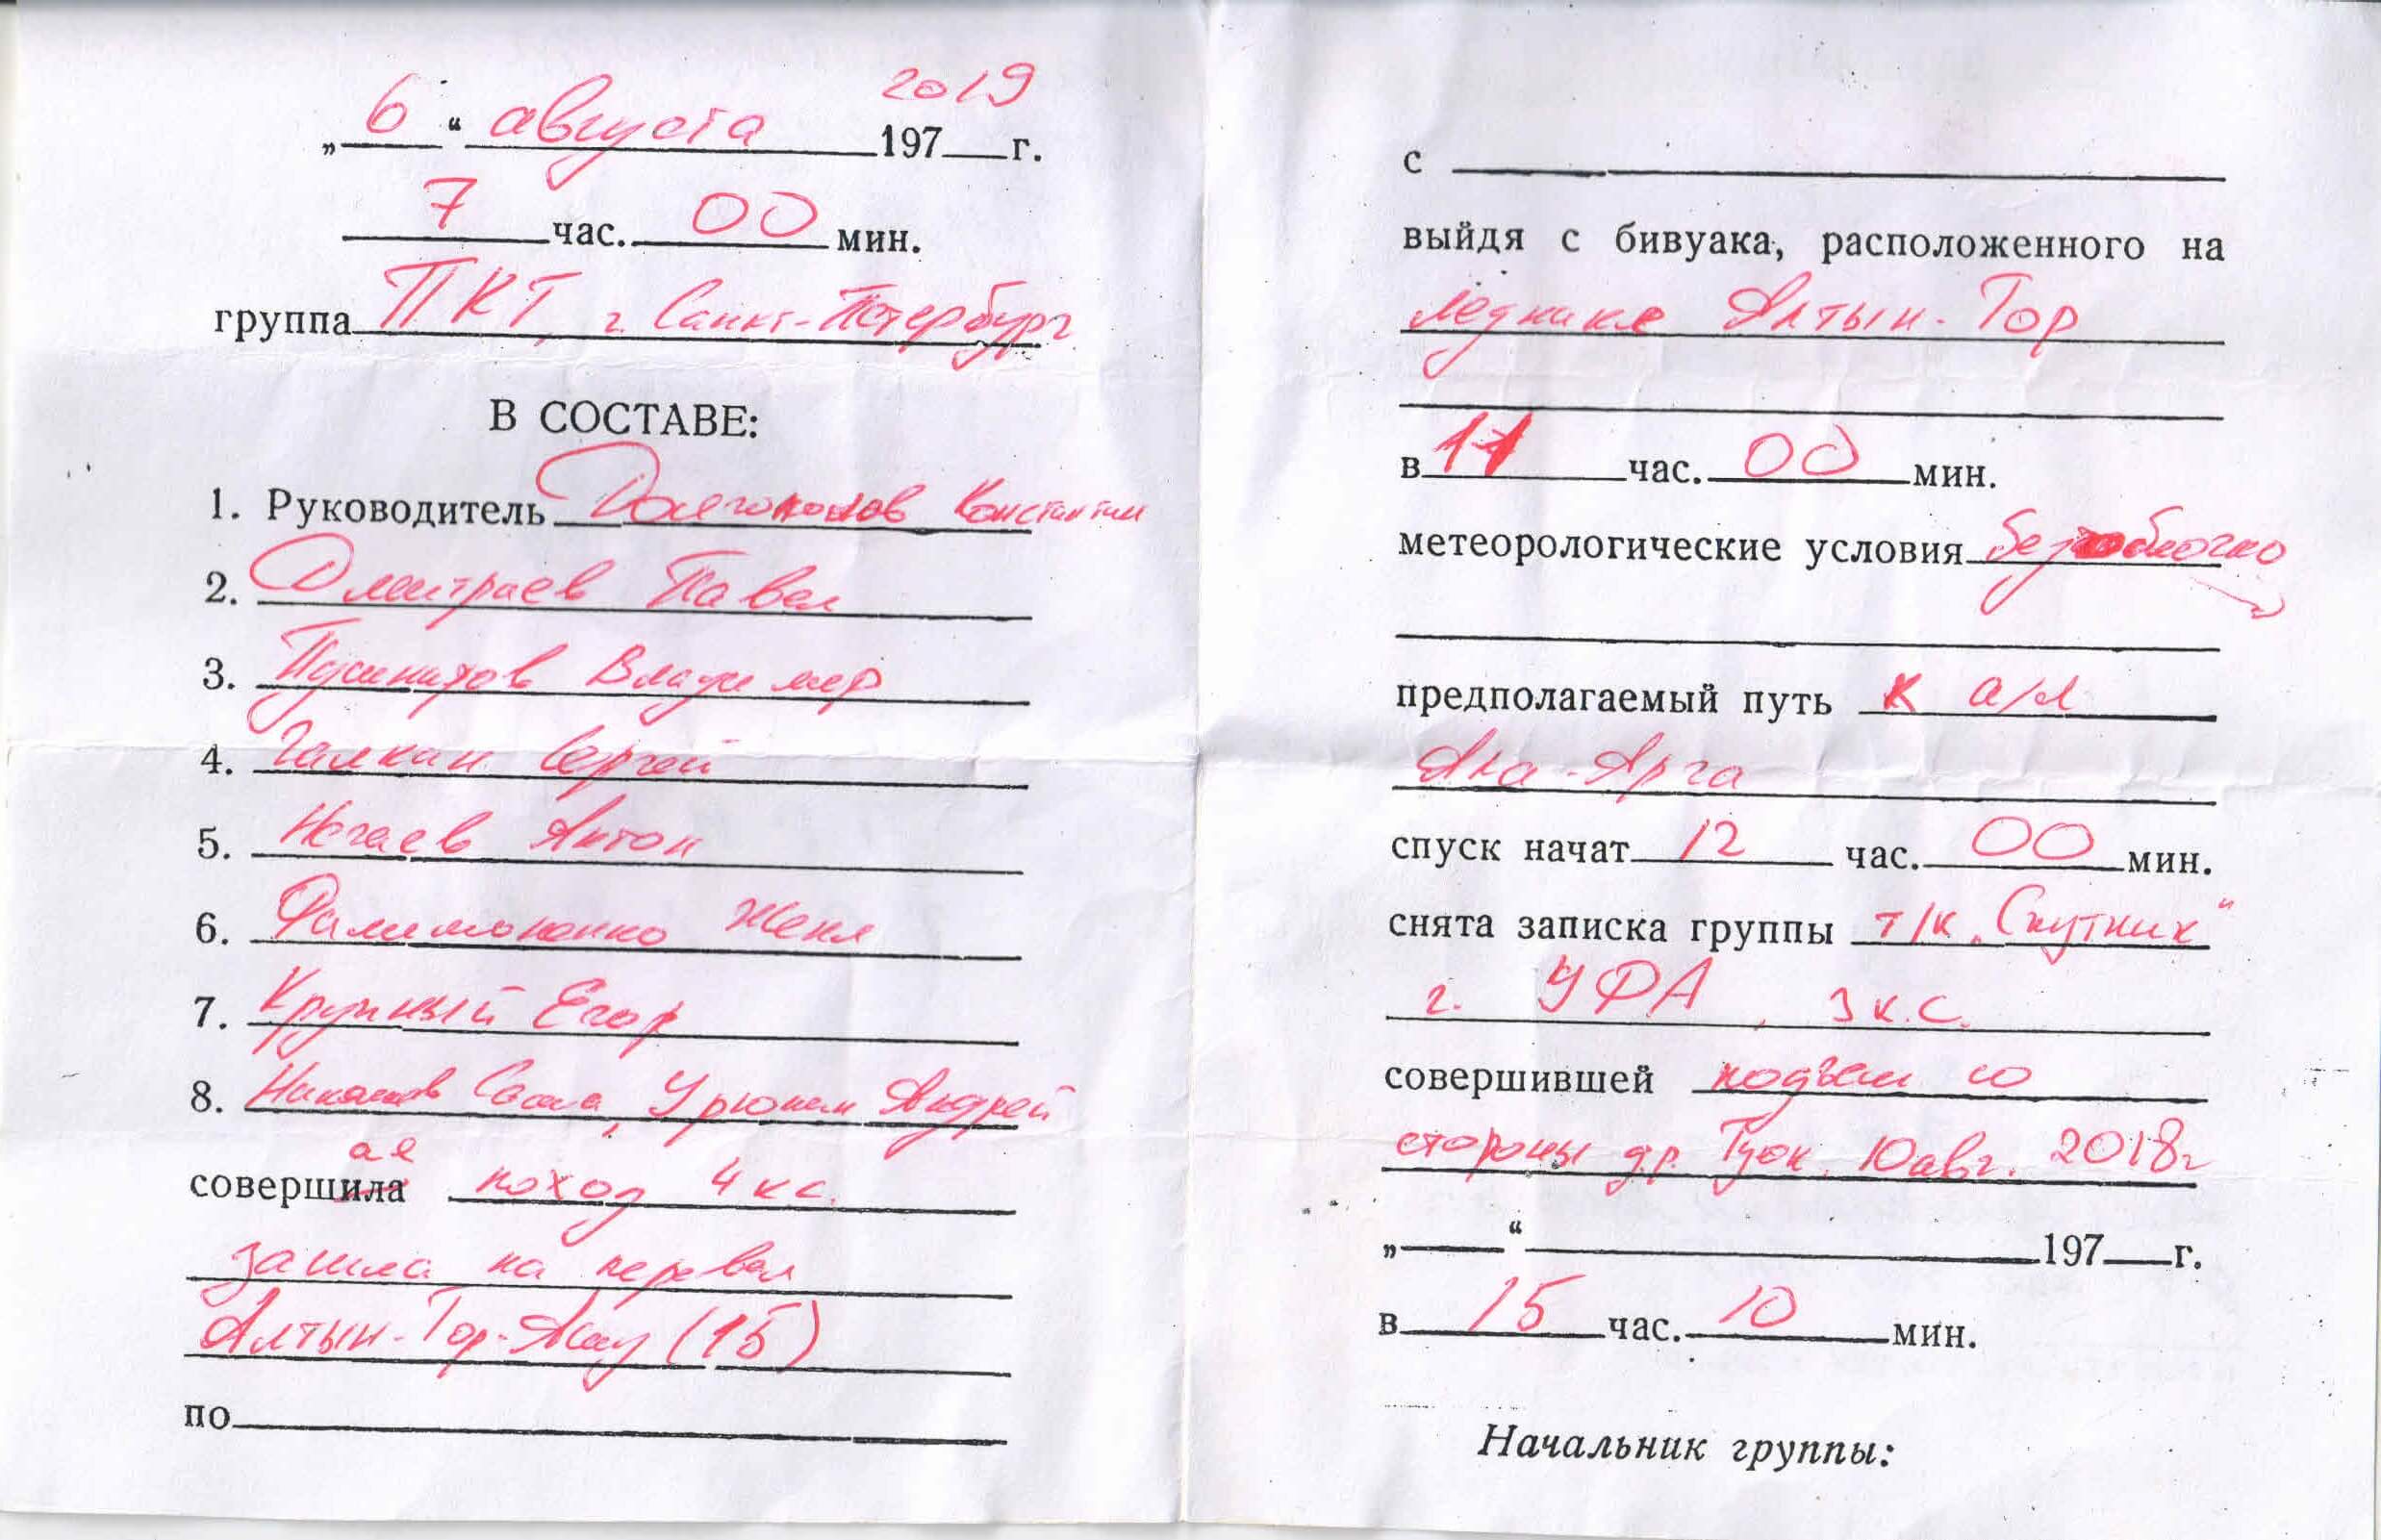 2019
„ 6 “ августа 197 г.
7 час. 00 мин.
группа ПКТ, г. Санкт-Петербург
В СОСТАВЕ:
1. Руководитель Константин
2. Павел
3. Владимир
4. Галкин Сергей
5. Нечаев Антон
6. Филимоненко Женя
7. Крупный Егор
8. Саша, Андрей
ая
совершила поход 4 к.с.
зашла на перевал
Алтын-Тор-Жау (1Б)
по
с
выйдя с бивуака, расположенного на
леднике Алтын-Тор
в 11 час. 00 мин.
метеорологические условия безоблачно
предполагаемый путь к а/л
Ала-Арча
спуск начат 12 час. 00 мин.
снята записка группы т/к „Спутник“
г. УФА, 3 к.с.
совершившей подъем со
стороны др. Туюк. 10 авг. 2018г
„ “ 197 г.
в 15 час. 10 мин.
Начальник группы: